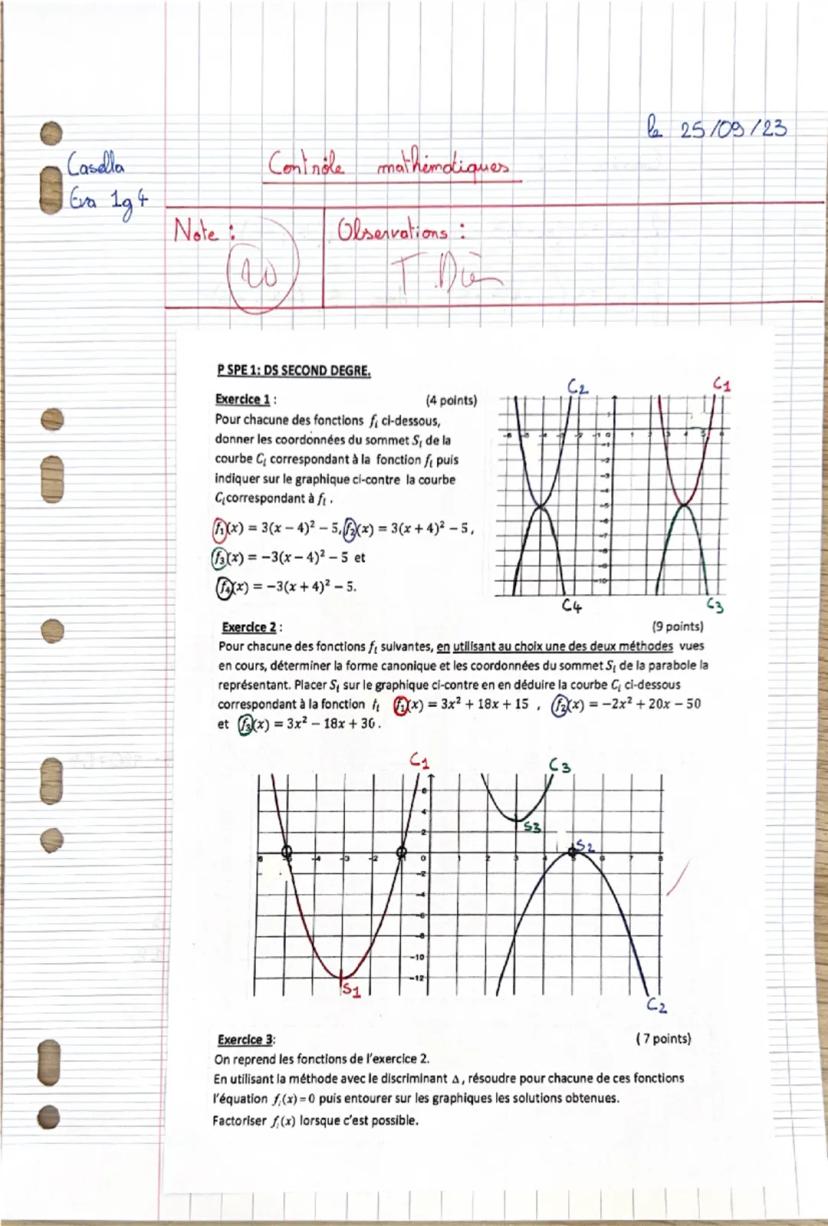 le 25/09/23
Casella
Eva 1g4
Contrôle mathématiques
Note :
Observations :
20
T.Bien
P SPE 1: DS SECOND DEGRE.
Exercice 1 : (4 points)
Pour chacune des fonctions fᵢ ci-dessous,
donner les coordonnées du sommet Sᵢ de la
courbe Cᵢ correspondant à la fonction fᵢ puis
indiquer sur le graphique ci-contre la courbe
Cᵢcorrespondant à fᵢ .
f₁(x) = 3(x − 4)² − 5, f₂(x) = 3(x + 4)² − 5 ,
f₃(x) = −3(x − 4)² − 5 et
f₄(x) = −3(x + 4)² − 5.
C2 C1
C4 C3
Exercice 2 : (9 points)
Pour chacune des fonctions fᵢ suivantes, en utilisant au choix une des deux méthodes vues
en cours, déterminer la forme canonique et les coordonnées du sommet Sᵢ de la parabole la
représentant. Placer Sᵢ sur le graphique ci-contre en en déduire la courbe Cᵢ ci-dessous
correspondant à la fonction fᵢ f₁(x) = 3x² + 18x + 15 , f₂(x) = −2x² + 20x − 50
et f₃(x) = 3x² − 18x + 30.
C1 C3
S3
S2
S1
C2
Exercice 3: ( 7 points)
On reprend les fonctions de l'exercice 2.
En utilisant la méthode avec le discriminant Δ, résoudre pour chacune de ces fonctions
l'équation fᵢ(x) = 0 puis entourer sur les graphiques les solutions obtenues.
Factoriser fᵢ(x) lorsque c'est possible.